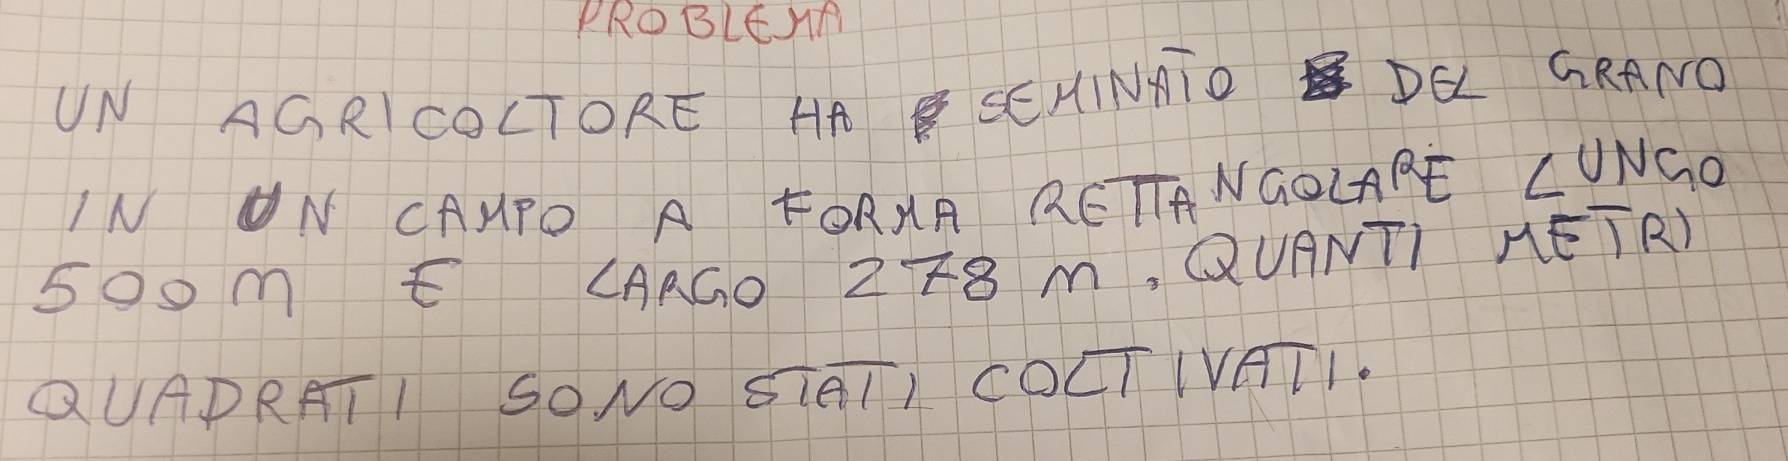 PROBLEMA
UN AGRICOLTORE HA SEMINATO DEL GRANO
IN UN CAMPO A FORMA RETTANGOLARE LUNGO
500 m E LARGO 278 m. QUANTI METRI
QUADRATI SONO STATI COLTIVATI.